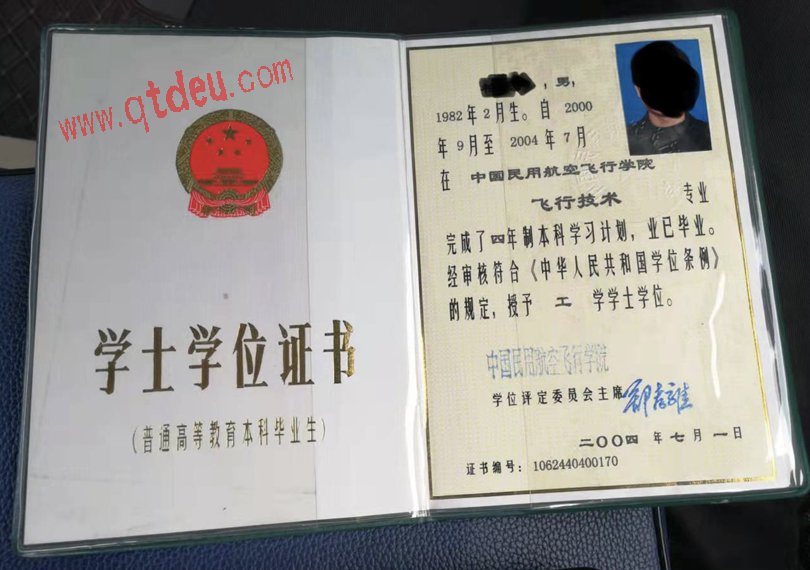 www.qtdeu.com
学士学位证书
(普通高等教育本科毕业生)
，男，
1982 年 2 月生。自 2000
年 9 月至 2004 年 7 月
在 中国民用航空飞行学院
飞行技术 专业
完成了四年制本科学习计划，业已毕业。
经审核符合《中华人民共和国学位条例》
的规定，授予 工 学学士学位。
中国民用航空飞行学院
学位评定委员会主席
二〇〇四 年 七 月 一 日
证书编号：1062440400170